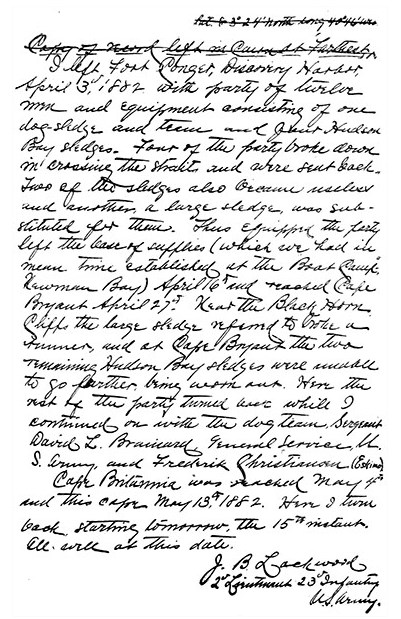 Lat. 83° 24' north long 40° 46' west
Copy of record left in Cairn at Farthest.
I left Fort Conger, Discovery Harbor,
April 3d, 1882 with party of twelve
men and equipment consisting of one
dog-sledge and team and four Hudson
Bay sledges. Four of the party broke down
in crossing the straits and were sent back.
Two of the sledges also became useless
and another, a large sledge, was sub-
stituted for them. Thus equipped the party
left the base of supplies (which we had in
mean time established at the Boat Camp,
Newman Bay) April 16th and reached Cape
Bryant April 27th. Near the Black Horn
Cliffs the large sledge referred to broke a
runner, and at Cape Bryant the two
remaining Hudson Bay sledges were unable
to go farther, being worn out. Here the
rest of the party turned back while I
continued on with the dog team, Sergeant
David L. Brainard, General Service, U.
S. Army, and Frederik Christiansen (Eskimo).
Cape Britannia was reached May 4th
and this cape May 13th, 1882. Here I turn
back, starting tomorrow, the 15th instant.
All well at this date.
J. B. Lockwood
2d Lieutenant 23d Infantry
U.S. Army.